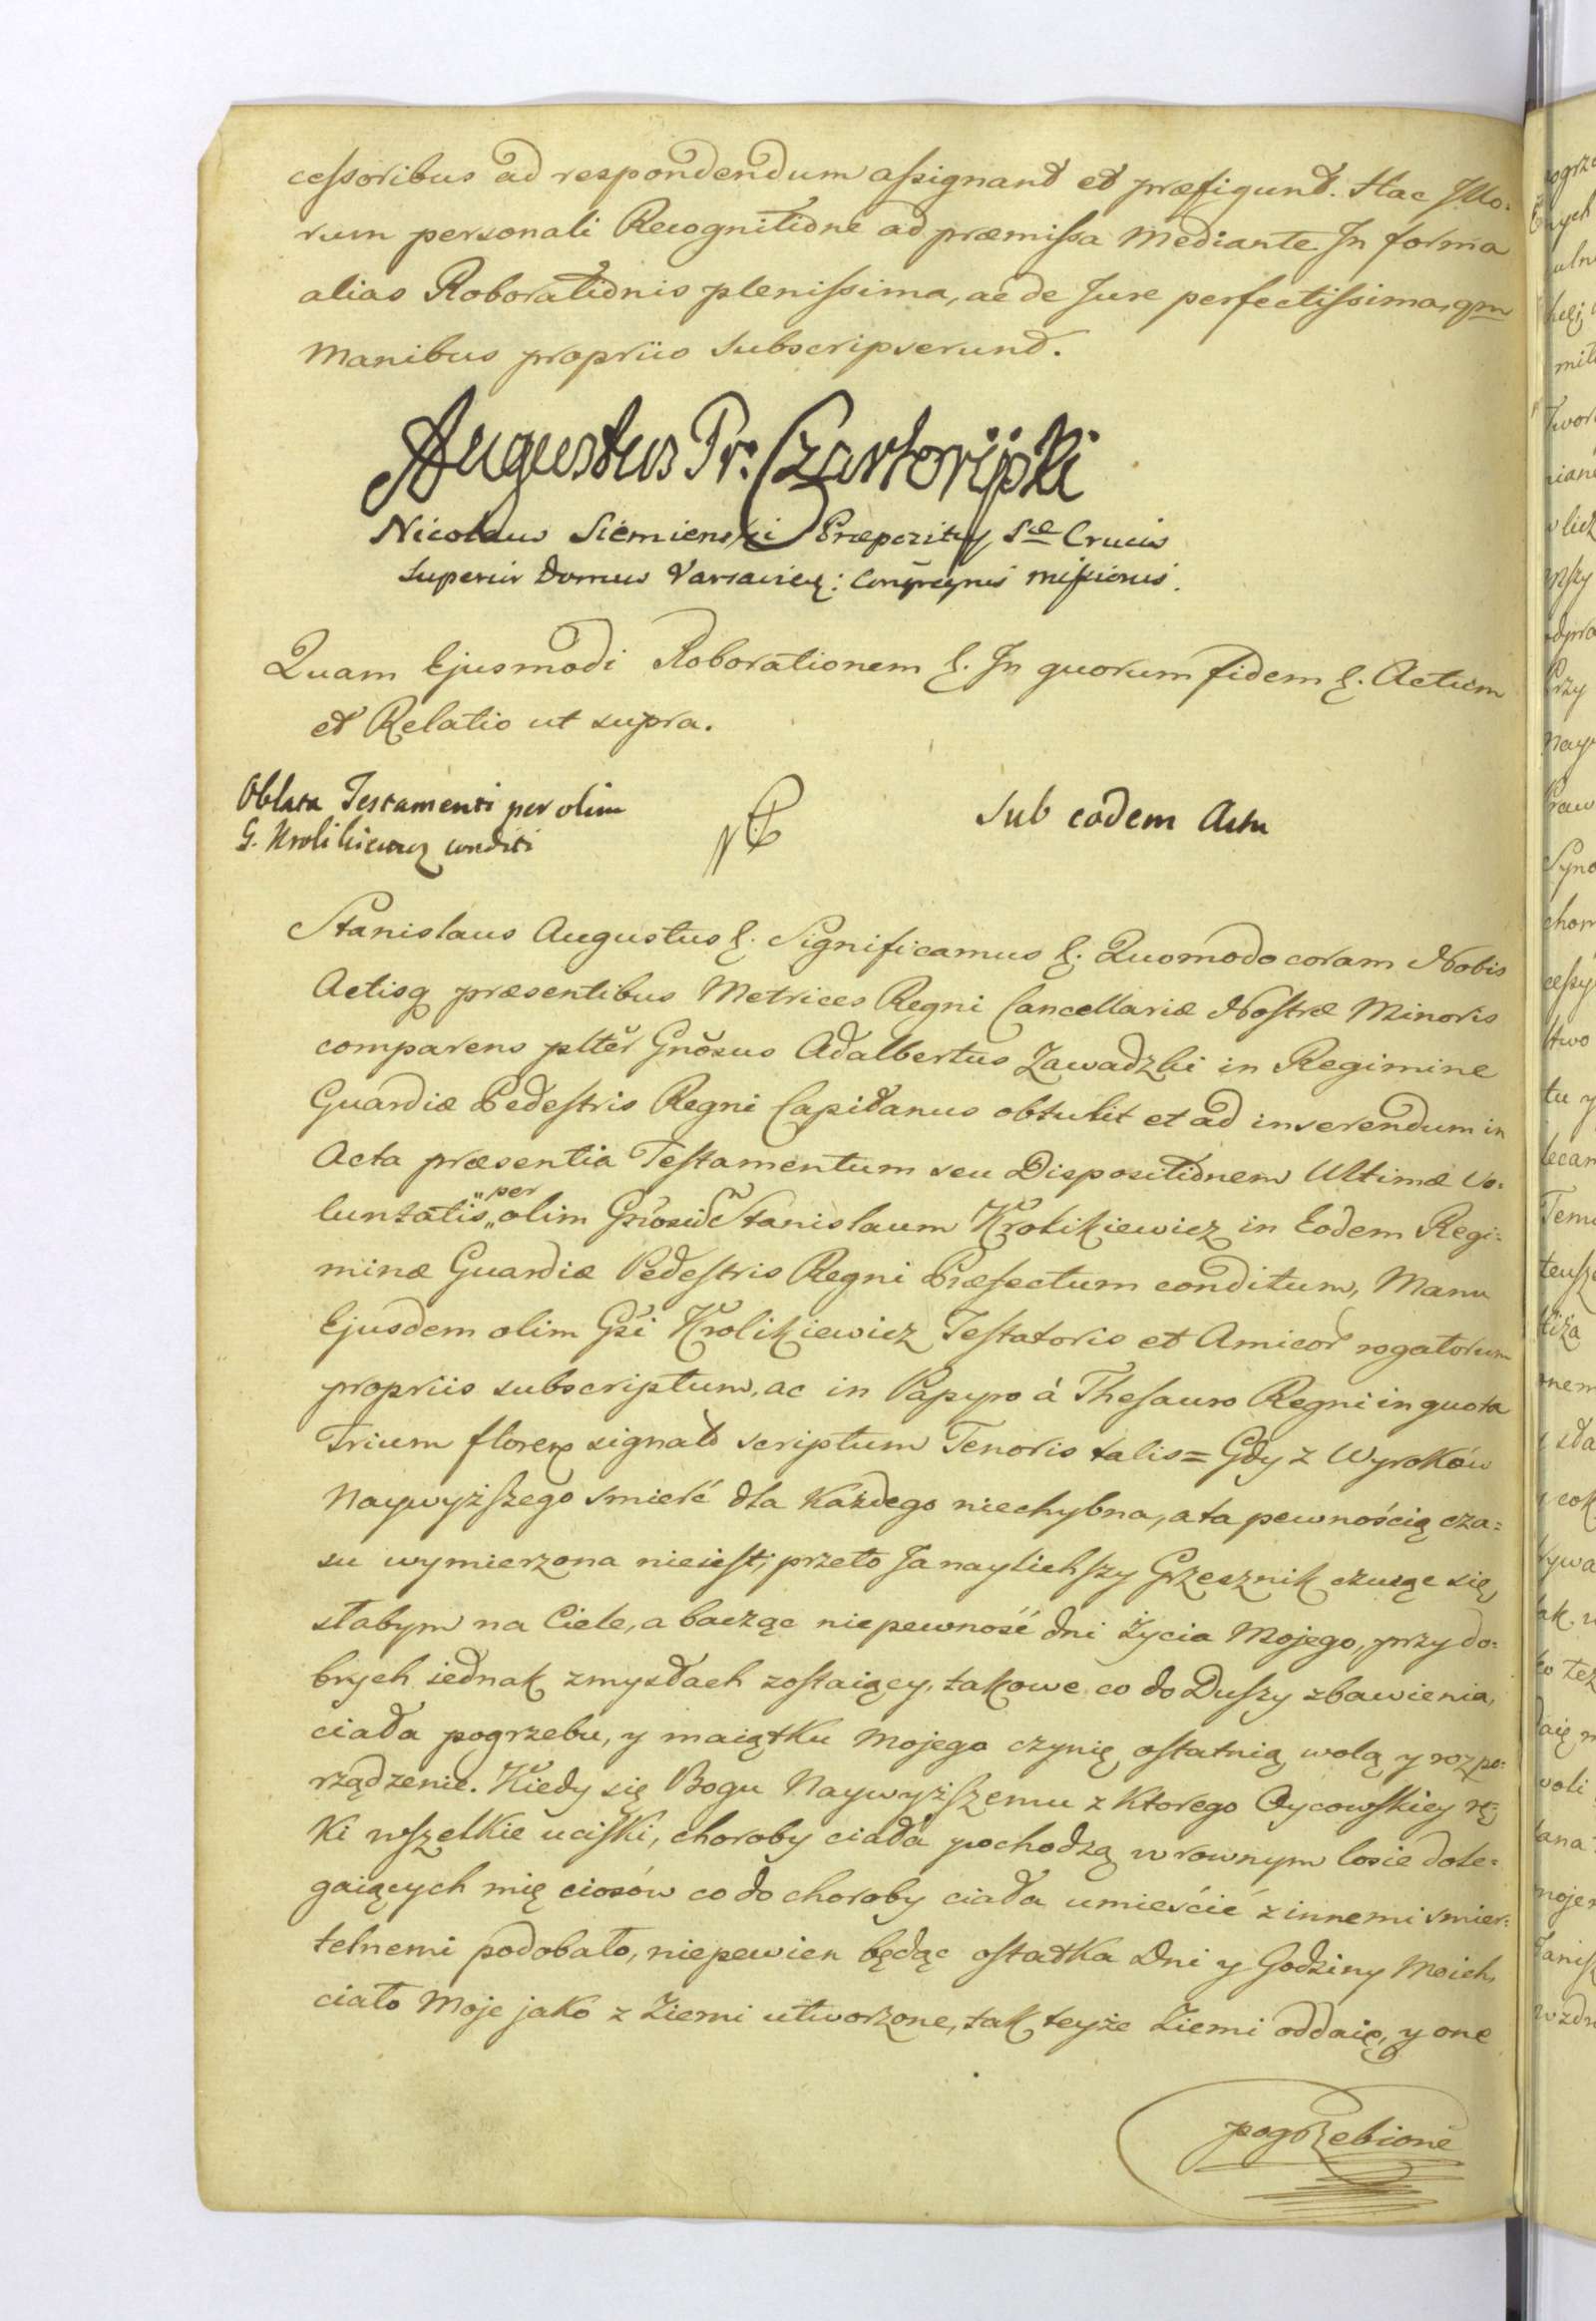 cessoribus ad respondendum assignant et præfigunt. Hac Illo=
rum personali Recognitione ad præmissa mediante In forma
alias Roborationis plenissima, ac de Jure perfectissima, qm
Manibus propriis subscripserunt.
Augustus Pr: Czartoryski
Nicolaus Siemienski Præpozity Scæ Crucis
Superior Domus Varsavien: Congregnis missionis.
Quam Ejusmodi Roborationem &. In quorum fidem &. Actum
et Relatio ut supra.
Oblata Testamenti per olim
G. Krolikiewicz conditi
Sub eodem Actu
Stanislaus Augustus &. Significamus &. Quomodo coram Nobis
Actisq præsentibus Metrices Regni Cancellariæ Nostræ Minoris
comparens pltěr Gnŏsus Adalbertus Zawadzki in Regimine
Guardiæ Pedestris Regni Capitanus obtulit et ad inserendum in
Acta præsentia Testamentum seu Dispositionem Ultimæ Vo=
luntatis per olim Stanislaum Krolikiewicz in Eodem Regi=
minæ Guardiæ Pedestris Regni Præfectum conditum, Manu
Ejusdem olim Gsi Krolikiewicz Testatoris et Amicor rogatorum
propriis subscriptum, ac in Papyro á Thesauro Regni in quota
Trium floren signato scriptum Tenoris talis = Gdy z Wyroków
Naywyższego smierć dla Każdego niechybna, a ta pewnością cza=
su wymierzona nieiest, przeto Ja naylichszy Grzesznik czuiąc się
słabym na Ciele, a bacząc niepewność dni Życia Mojego, przy do=
brych iednak zmysłach zostaiący, takowe co do Duszy zbawienia,
ciała pogrzebu, y maiątku Mojego czynię ostatnią wolą y rozpo=
rządzenie. Kiedy się Bogu Naywyższemu z Ktorego Oycowskiey rę=
Ki wszelkie uciski, choroby ciała pochodzą w rownym losie dole=
gaiących mię ciosów co do choroby ciała umieścić z innemi smier=
telnemi podobało, niepewien będąc ostatka Dni y Godziny Moich,
ciało Moje jako z Ziemi utworzone, tak teyże Ziemi oddaię, y one
pogrzebione